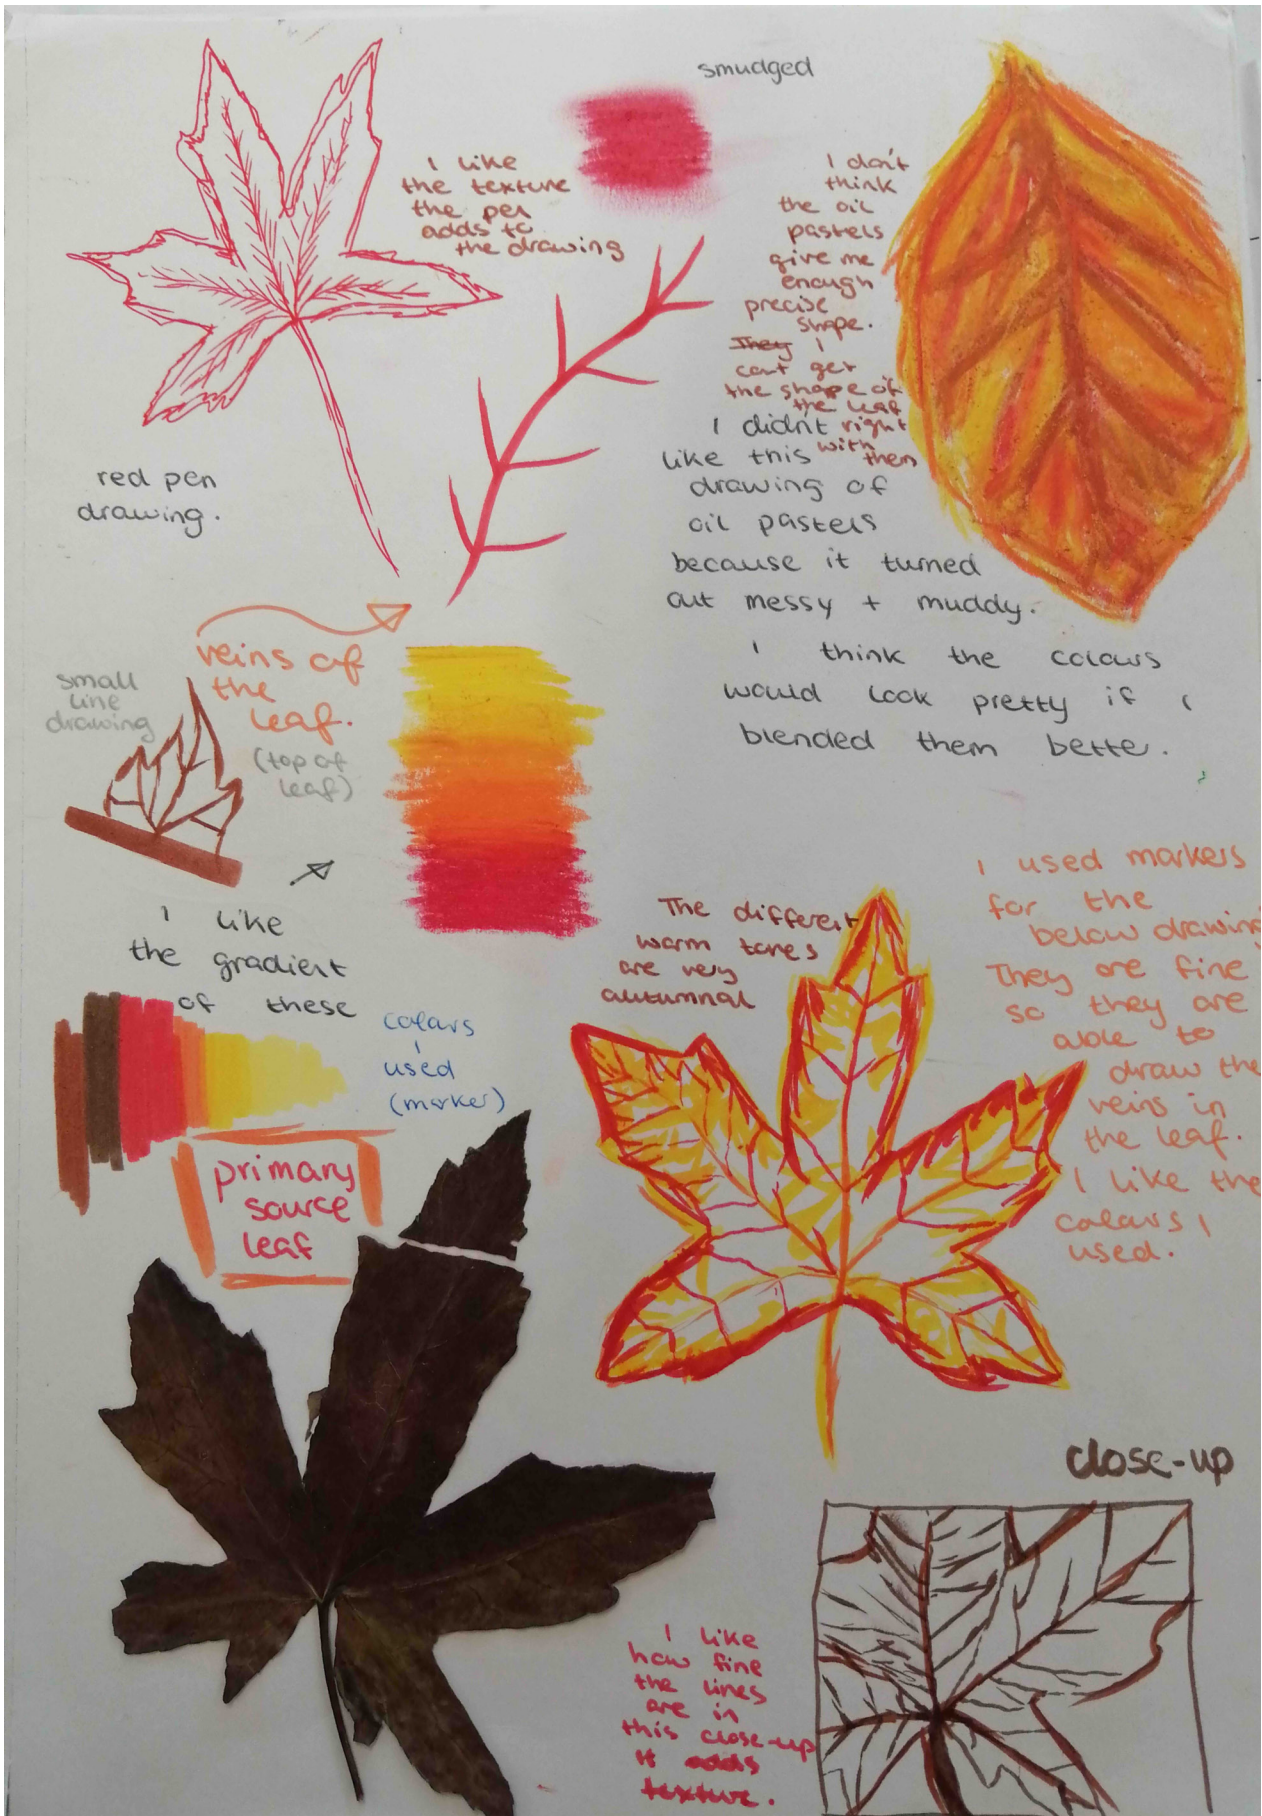 smudged
I like
the texture
the pen
adds to
the drawing
I don't
think
the oil
pastels
give me
enough
precise
shape.
They I
cant get
the shape of
the leaf
right
with
them
red pen
drawing.
I didn't
like this
drawing of
oil pastels
because it turned
out messy + muddy.
I think the colours
would look pretty if I
blended them bette.
veins of
the
leaf.
(top of
leaf)
small
line
drawing
I like
the gradient
of these
colours
I
used
(marker)
The different
warm tones
are very
autumnal
I used markers
for the
below drawing
They are fine
so they are
able to
draw the
veins in
the leaf.
I like the
colours I
used.
primary
source
leaf
close-up
I like
how fine
the lines
are in
this close-up
It adds
texture.